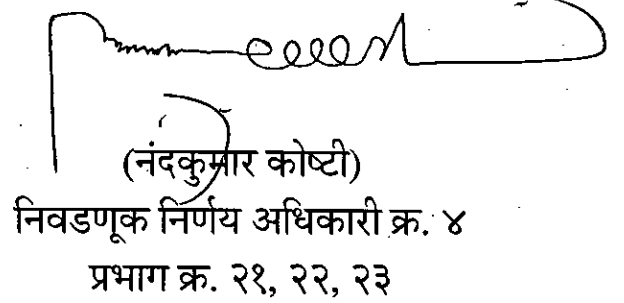 (नंदकुमार कोष्टी)
निवडणूक निर्णय अधिकारी क्र. ४
प्रभाग क्र. २१, २२, २३